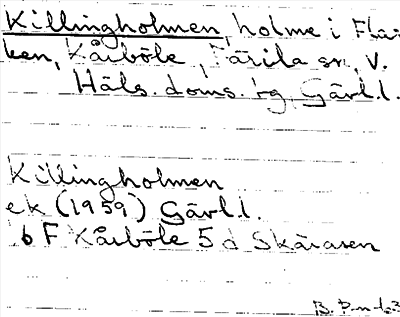 Killingholmen, holme i Flar
ken, Kårböle, Färila sn, V.
Häls. doms. Gävl.l.
Killingholmen
ek (1959) Gävl.l.
6 F Kårböle 5 d Skärasen